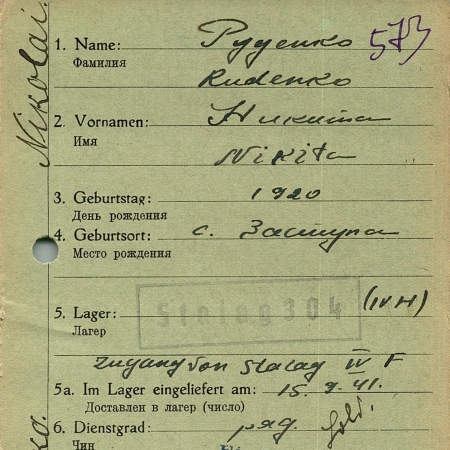 Nikolai.
573
1. Name: Руденко
Фамилия
Rudenko
2. Vornamen: Никита
Имя
Nikita
3. Geburtstag: 1920
День рождения
4. Geburtsort: с. Заступа
Место рождения
5. Lager: Stalag 304 (IV H)
Лагер
Zugang von Stalag IV F
5a. Im Lager eingeliefert am: 15.9.41.
Доставлен в лагер (число)
6. Dienstgrad: ряд. Sold.
Чин